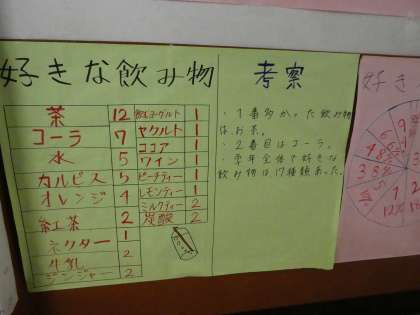 好きな飲み物
茶 12
コーラ 7
水 5
カルピス 5
オレンジ 4
紅茶 2
ネクター 1
牛乳 2
ジンジャー 2
飲むヨーグルト 1
ヤクルト 1
ココア 1
ワイン 1
ピーチティー 1
レモンティー 1
ミルクティー 2
炭酸 2
考察
・1番多かった飲み物
はお茶。
・2番目はコーラ。
・学年全体で好きな
飲み物は17種類あった。
好き